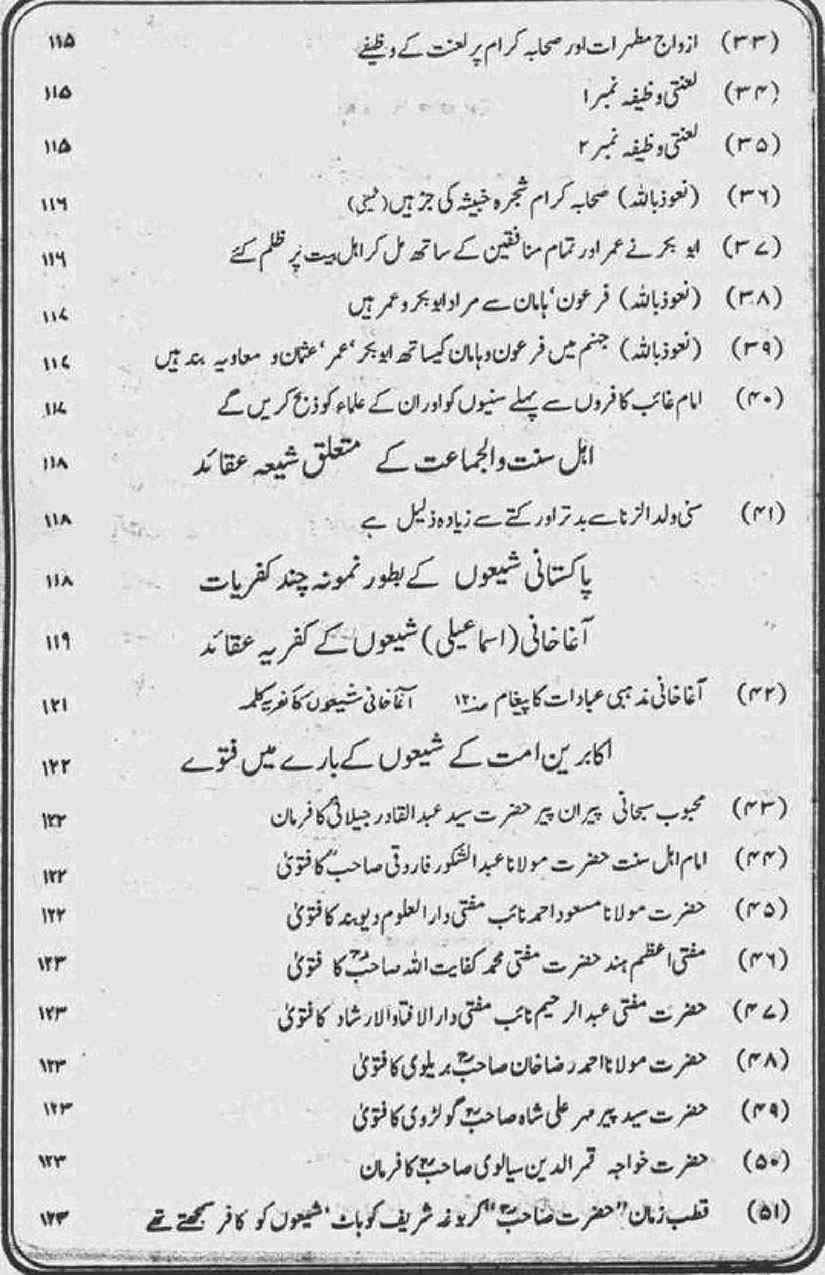 (۳۳) ازواج مطہرات اور صحابہ کرام پر لعنت کے وظیفے ۱۱۵
(۳۴) لعنتی وظیفہ نمبر ۱ ۱۱۵
(۳۵) لعنتی وظیفہ نمبر ۲ ۱۱۵
(۳۶) (نعوذ باللہ) صحابہ کرام شجرہ خبیثہ کی جڑ ہیں ۱۱۶
(۳۷) ابو بکر نے عمر اور تمام منافقین کے ساتھ مل کر اہل بیت پر ظلم کئے ۱۱۶
(۳۸) (نعوذ باللہ) فرعون‘ ہامان سے مراد ابو بکر و عمر ہیں ۱۱۷
(۳۹) (نعوذ باللہ) جہنم میں فرعون و ہامان کیساتھ ابو بکر‘ عمر‘ عثمان و معاویہ بند ہیں ۱۱۷
(۴۰) امام غائب کافروں سے پہلے سنیوں کو اور ان کے علماء کو ذبح کریں گے ۱۱۷
اہل سنت والجماعت کے متعلق شیعہ عقائد ۱۱۸
(۴۱) سنی ولد الزنا سے بدتر اور کتے سے زیادہ ذلیل ہے ۱۱۸
پاکستانی شیعوں کے بطور نمونہ چند کفریات ۱۱۸
آغاخانی (اسماعیلی) شیعوں کے کفریہ عقائد ۱۱۹
(۴۲) آغاخانی مذہبی عبادات کا پیغام صـ۱۲۰ آغاخانی شیعوں کا کفریہ کلمہ ۱۲۱
اکابرین امت کے شیعوں کے بارے میں فتوے ۱۲۲
(۴۳) محبوب سبحانی پیران پیر حضرت سید عبدالقادر جیلانیؒ کا فرمان ۱۲۲
(۴۴) امام اہل سنت حضرت مولانا عبدالشکور فاروقی صاحبؒ کا فتویٰ ۱۲۲
(۴۵) حضرت مولانا مسعود احمد نائب مفتی دارالعلوم دیوبند کا فتویٰ ۱۲۲
(۴۶) مفتی اعظم ہند حضرت مفتی محمد کفایت اللہ صاحبؒ کا فتویٰ ۱۲۳
(۴۷) حضرت مفتی عبدالرحیم نائب مفتی دارالافتاء والارشاد کا فتویٰ ۱۲۳
(۴۸) حضرت مولانا احمد رضا خان صاحبؒ بریلوی کا فتویٰ ۱۲۳
(۴۹) حضرت سید پیر مہر علی شاہ صاحبؒ گولڑوی کا فتویٰ ۱۲۳
(۵۰) حضرت خواجہ قمر الدین سیالوی صاحبؒ کا فرمان ۱۲۳
(۵۱) قطب زمان "حضرت صاحبؒ" کربوغہ شریف کوہاٹ‘ شیعوں کو کافر سمجھتے تھے ۱۲۳